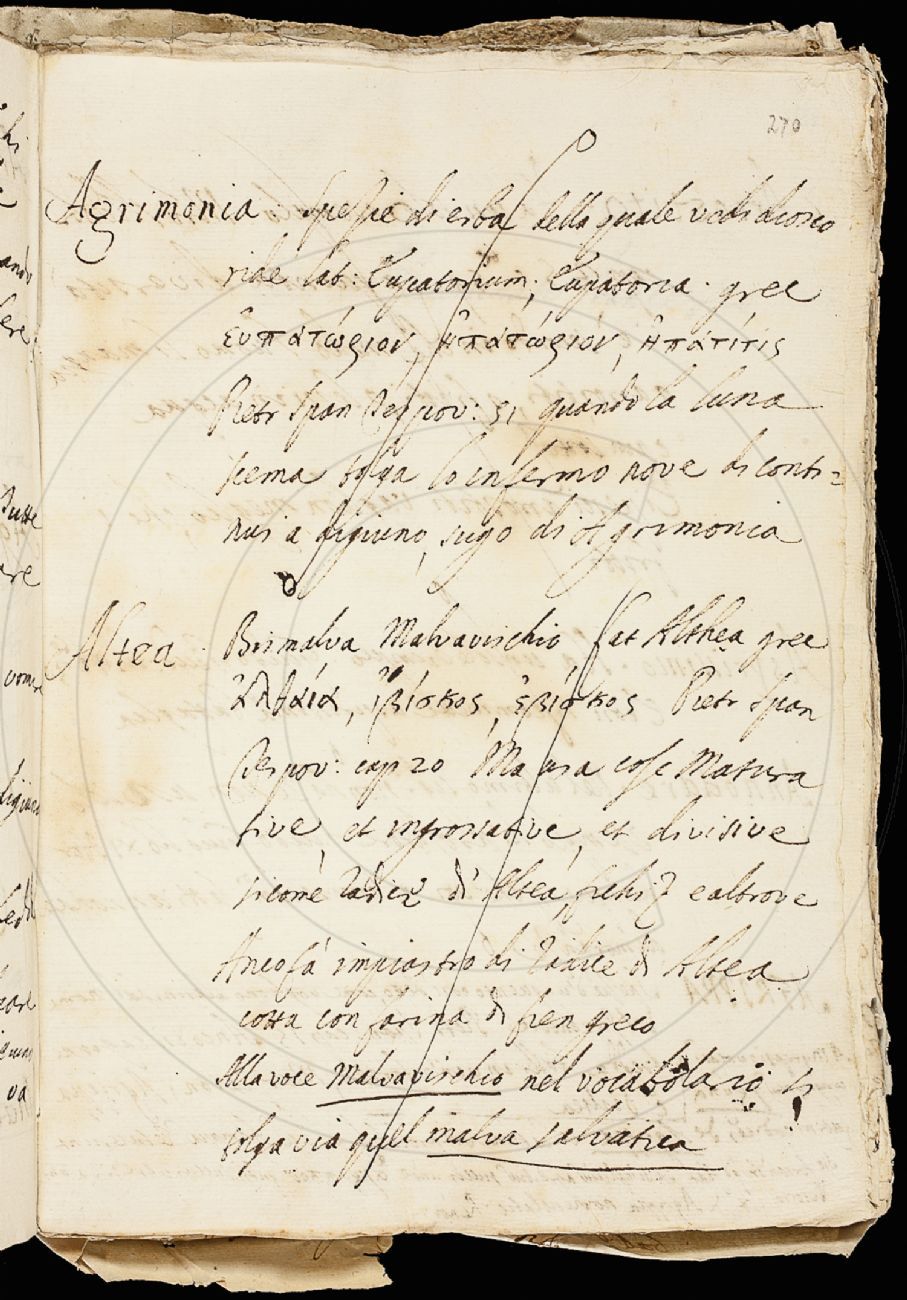 270
Agrimonia. Spezie di erba della quale vedi diosco
ride lat: Eupatorium; Eupatoria. grec
ἐυπατώριον, ἡπατώριον, ἡπατίτις
Pietr Span Tes pov: 51 quando la luna
scema tolga lo infermo nove di conti=
nui a digiuno, sugo di Agrimonia
Altea. Bismalva Malvavischio lat Althea grec
ἀλθαία, ἰβίσκος, ἐβίσκος Pietr Span
Tes pov: cap 20 Ma usa cose Matura
tive, et ingrossative, et divisive
sicome radice di Altea, fichi e altrove
Ancofà impiastro di radice di Altea
cotta con farina di fien greco
Alla voce Malvavischio nel vocabolario si
tolga via quel malva salvatica